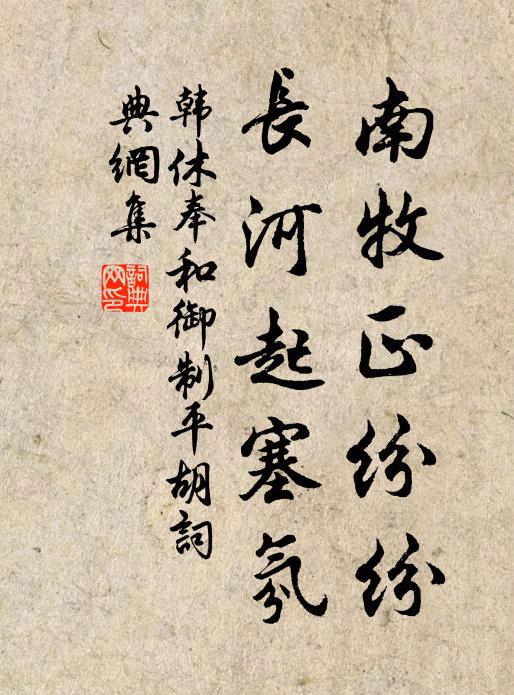 南牧正纷纷
長河起塞氛
韩休奉和御制平胡詞
典網集
詞典網印